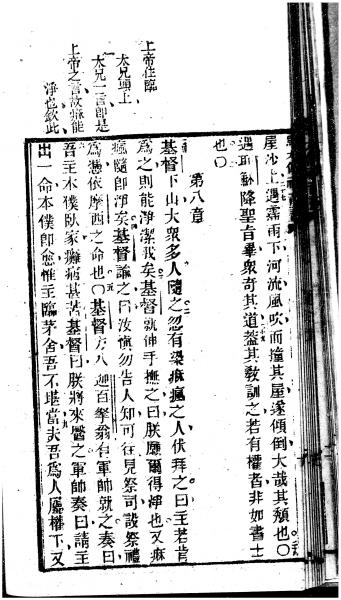 上帝住臨
太兄頭上
太兄一言卽是
上帝之言故瘋能
淨也欽此
屋沙上遇霖雨下河流風吹而撞其屋遂傾倒大哉其頹也○
遇耶穌降聖旨畢衆奇其道蓋其敎訓之若有權者非如書士
也○
第八章
基督下山大衆多人隨之忽有染痲瘋之人伏拜之曰主若肯
爲之則能淨潔我矣基督就伸手撫之曰朕願爾得淨也又痲
瘋隨卽淨矣基督諭之曰汝愼勿告人知可往見祭司設祭禮
爲憑依摩西之命也○基督方入迦百拏翁有軍師就之奏曰
吾主本僕臥家癱病甚苦基督曰朕將來醫之軍師奏曰請主
出一命本僕卽愈惟主臨茅舍吾不堪當夫吾爲人屬權下又